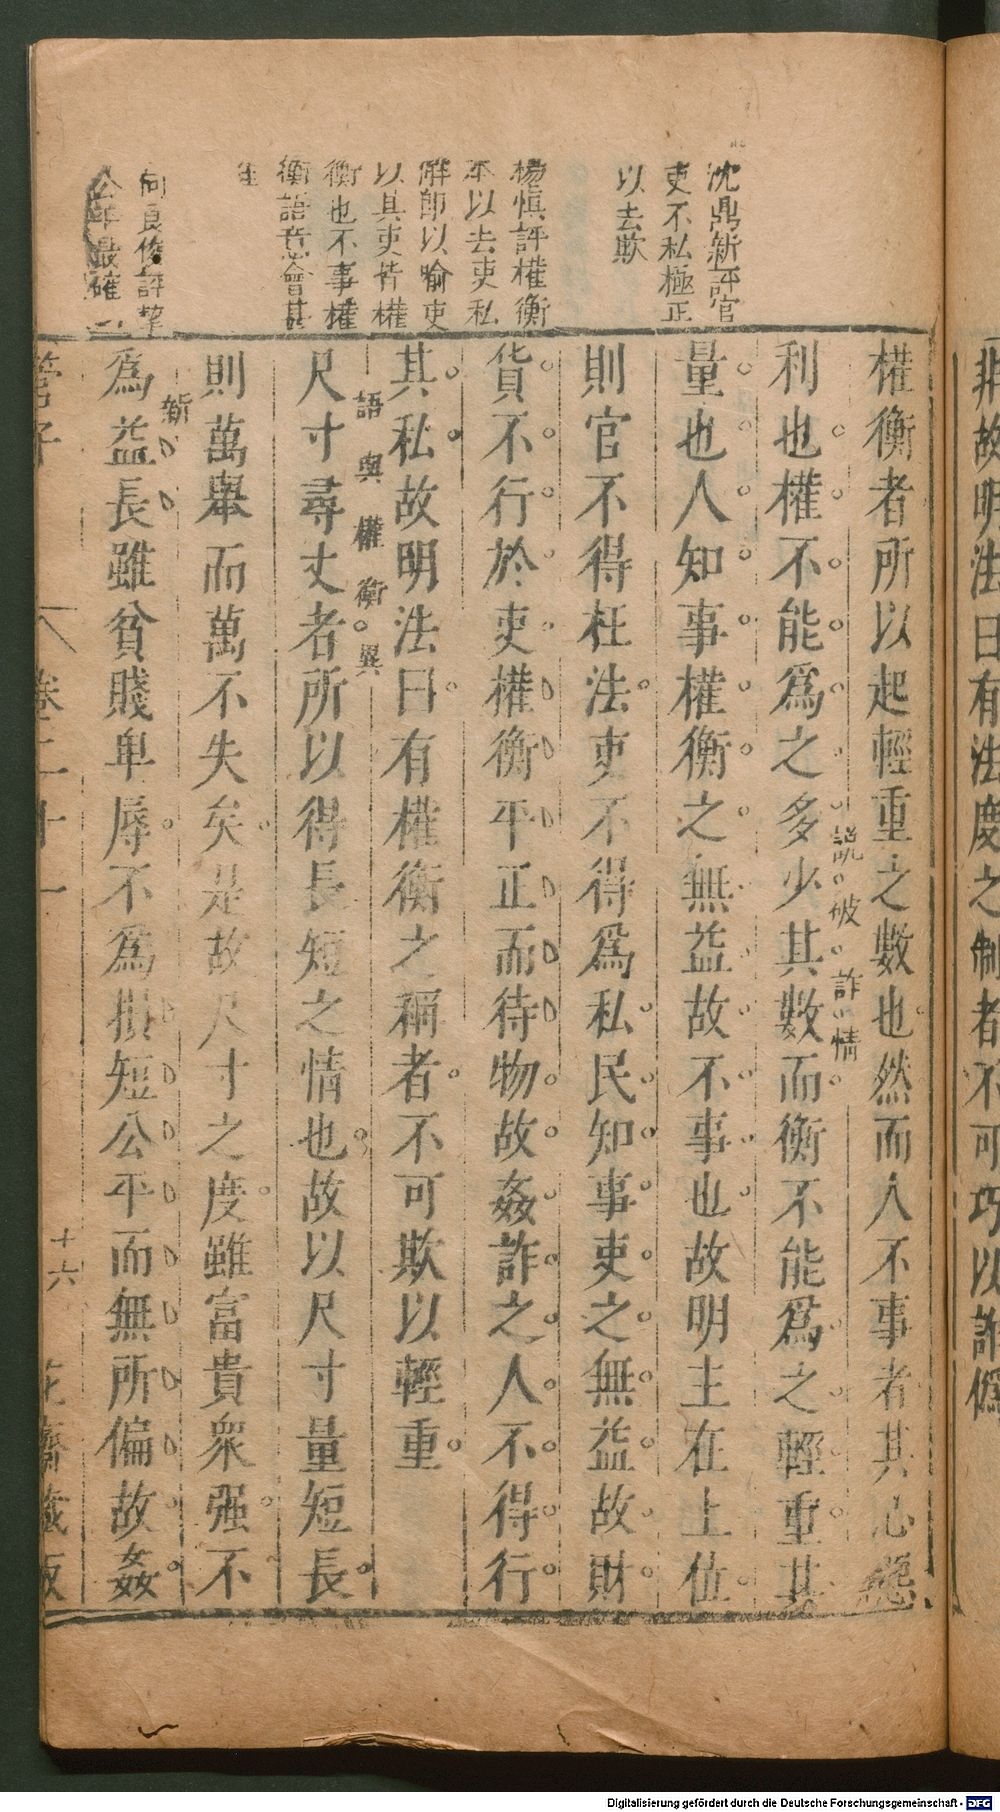 非故明法曰有法度之制者不可巧以詐僞
沈鼎新評官
吏不私極正
以去欺
楊慎評權衡
本以去吏私
解郎以喻吏
以其吏皆權
衡也不事權
衡語意會甚
公平最確
權衡者所以起輕重之數也然而人不事者其心惡
利也權不能爲之多少其數而衡不能爲之輕重其
說破詐情
量也人知事權衡之無益故不事也故明主在上位
則官不得枉法吏不得爲私民知事吏之無益故財
貨不行於吏權衡平正而待物故姦詐之人不得行
其私故明法曰有權衡之稱者不可欺以輕重
語與權衡異
尺寸尋丈者所以得長短之情也故以尺寸量短長
則萬舉而萬不失矣是故尺寸之度雖富貴衆强不
新
爲益長雖貧賤卑辱不爲損短公平而無所偏故姦
管子
卷二十一
十六
花齋藏板
Digitalisierung gefördert durch die Deutsche Forschungsgemeinschaft - DFG